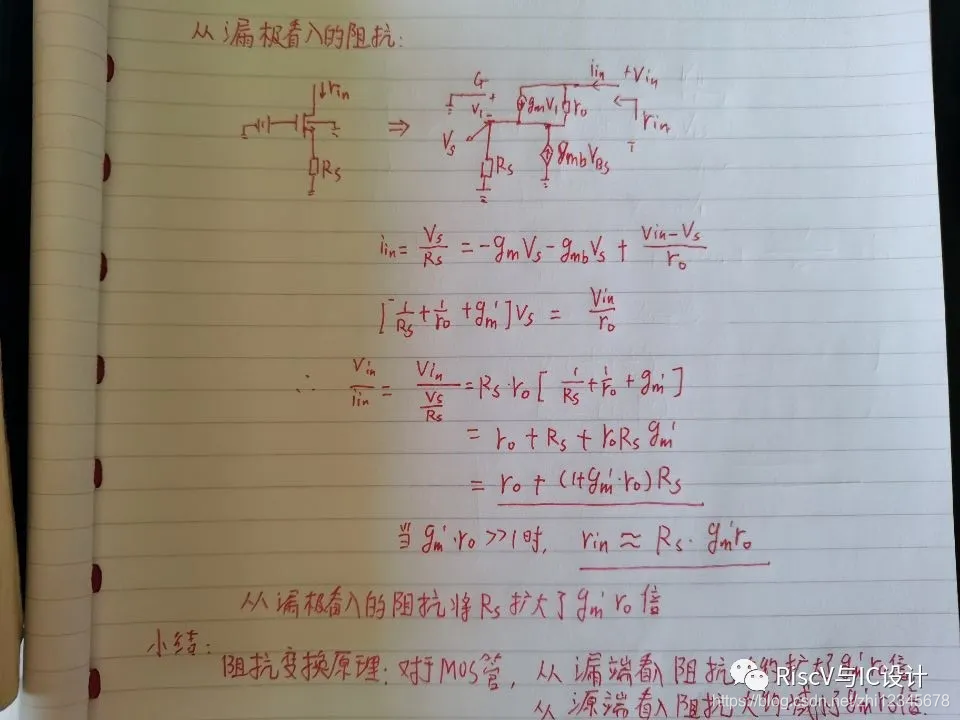 从漏极看入的阻抗:
↓rin
Rs
⇒
G
V1
+
-
gmV1
ro
iin
+Vin
rin
Vs
Rs
gmbVBs
iin = Vs/Rs = -gmVs - gmbVs + (Vin-Vs)/ro
[1/Rs + 1/ro + gm']Vs = Vin/ro
∴ Vin/iin = Vin/(Vs/Rs) = Rs·ro[1/Rs + 1/ro + gm']
= ro + Rs + roRs gm'
= ro + (1+gm'·ro)Rs
当 gm'·ro >>1时, rin ≈ Rs·gm'ro
从漏极看入的阻抗将Rs扩大了gm'ro倍
小结:
阻抗变换原理:对于MOS管, 从漏端看入阻抗大约扩大gm'ro倍
从源端看入阻抗大约减小gm'ro倍.
RiscV与IC设计
https://blog.csdn.net/zhi12345678